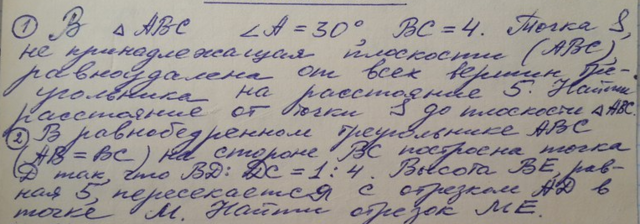 ① В △ АВС ∠А = 30° ВС = 4. Точка S,
не принадлежащая плоскости (АВС)
равноудалена от всех вершин тре-
угольника на расстояние 5. Найти
расстояние от точки S до плоскости △ АВС.
② В равнобедренном треугольнике АВС
(АВ = ВС) на стороне ВС построена точка
D так, что BD : DC = 1 : 4. Высота ВЕ, рав-
ная 5, пересекается с отрезком АD в
точке М. Найти отрезок МЕ.